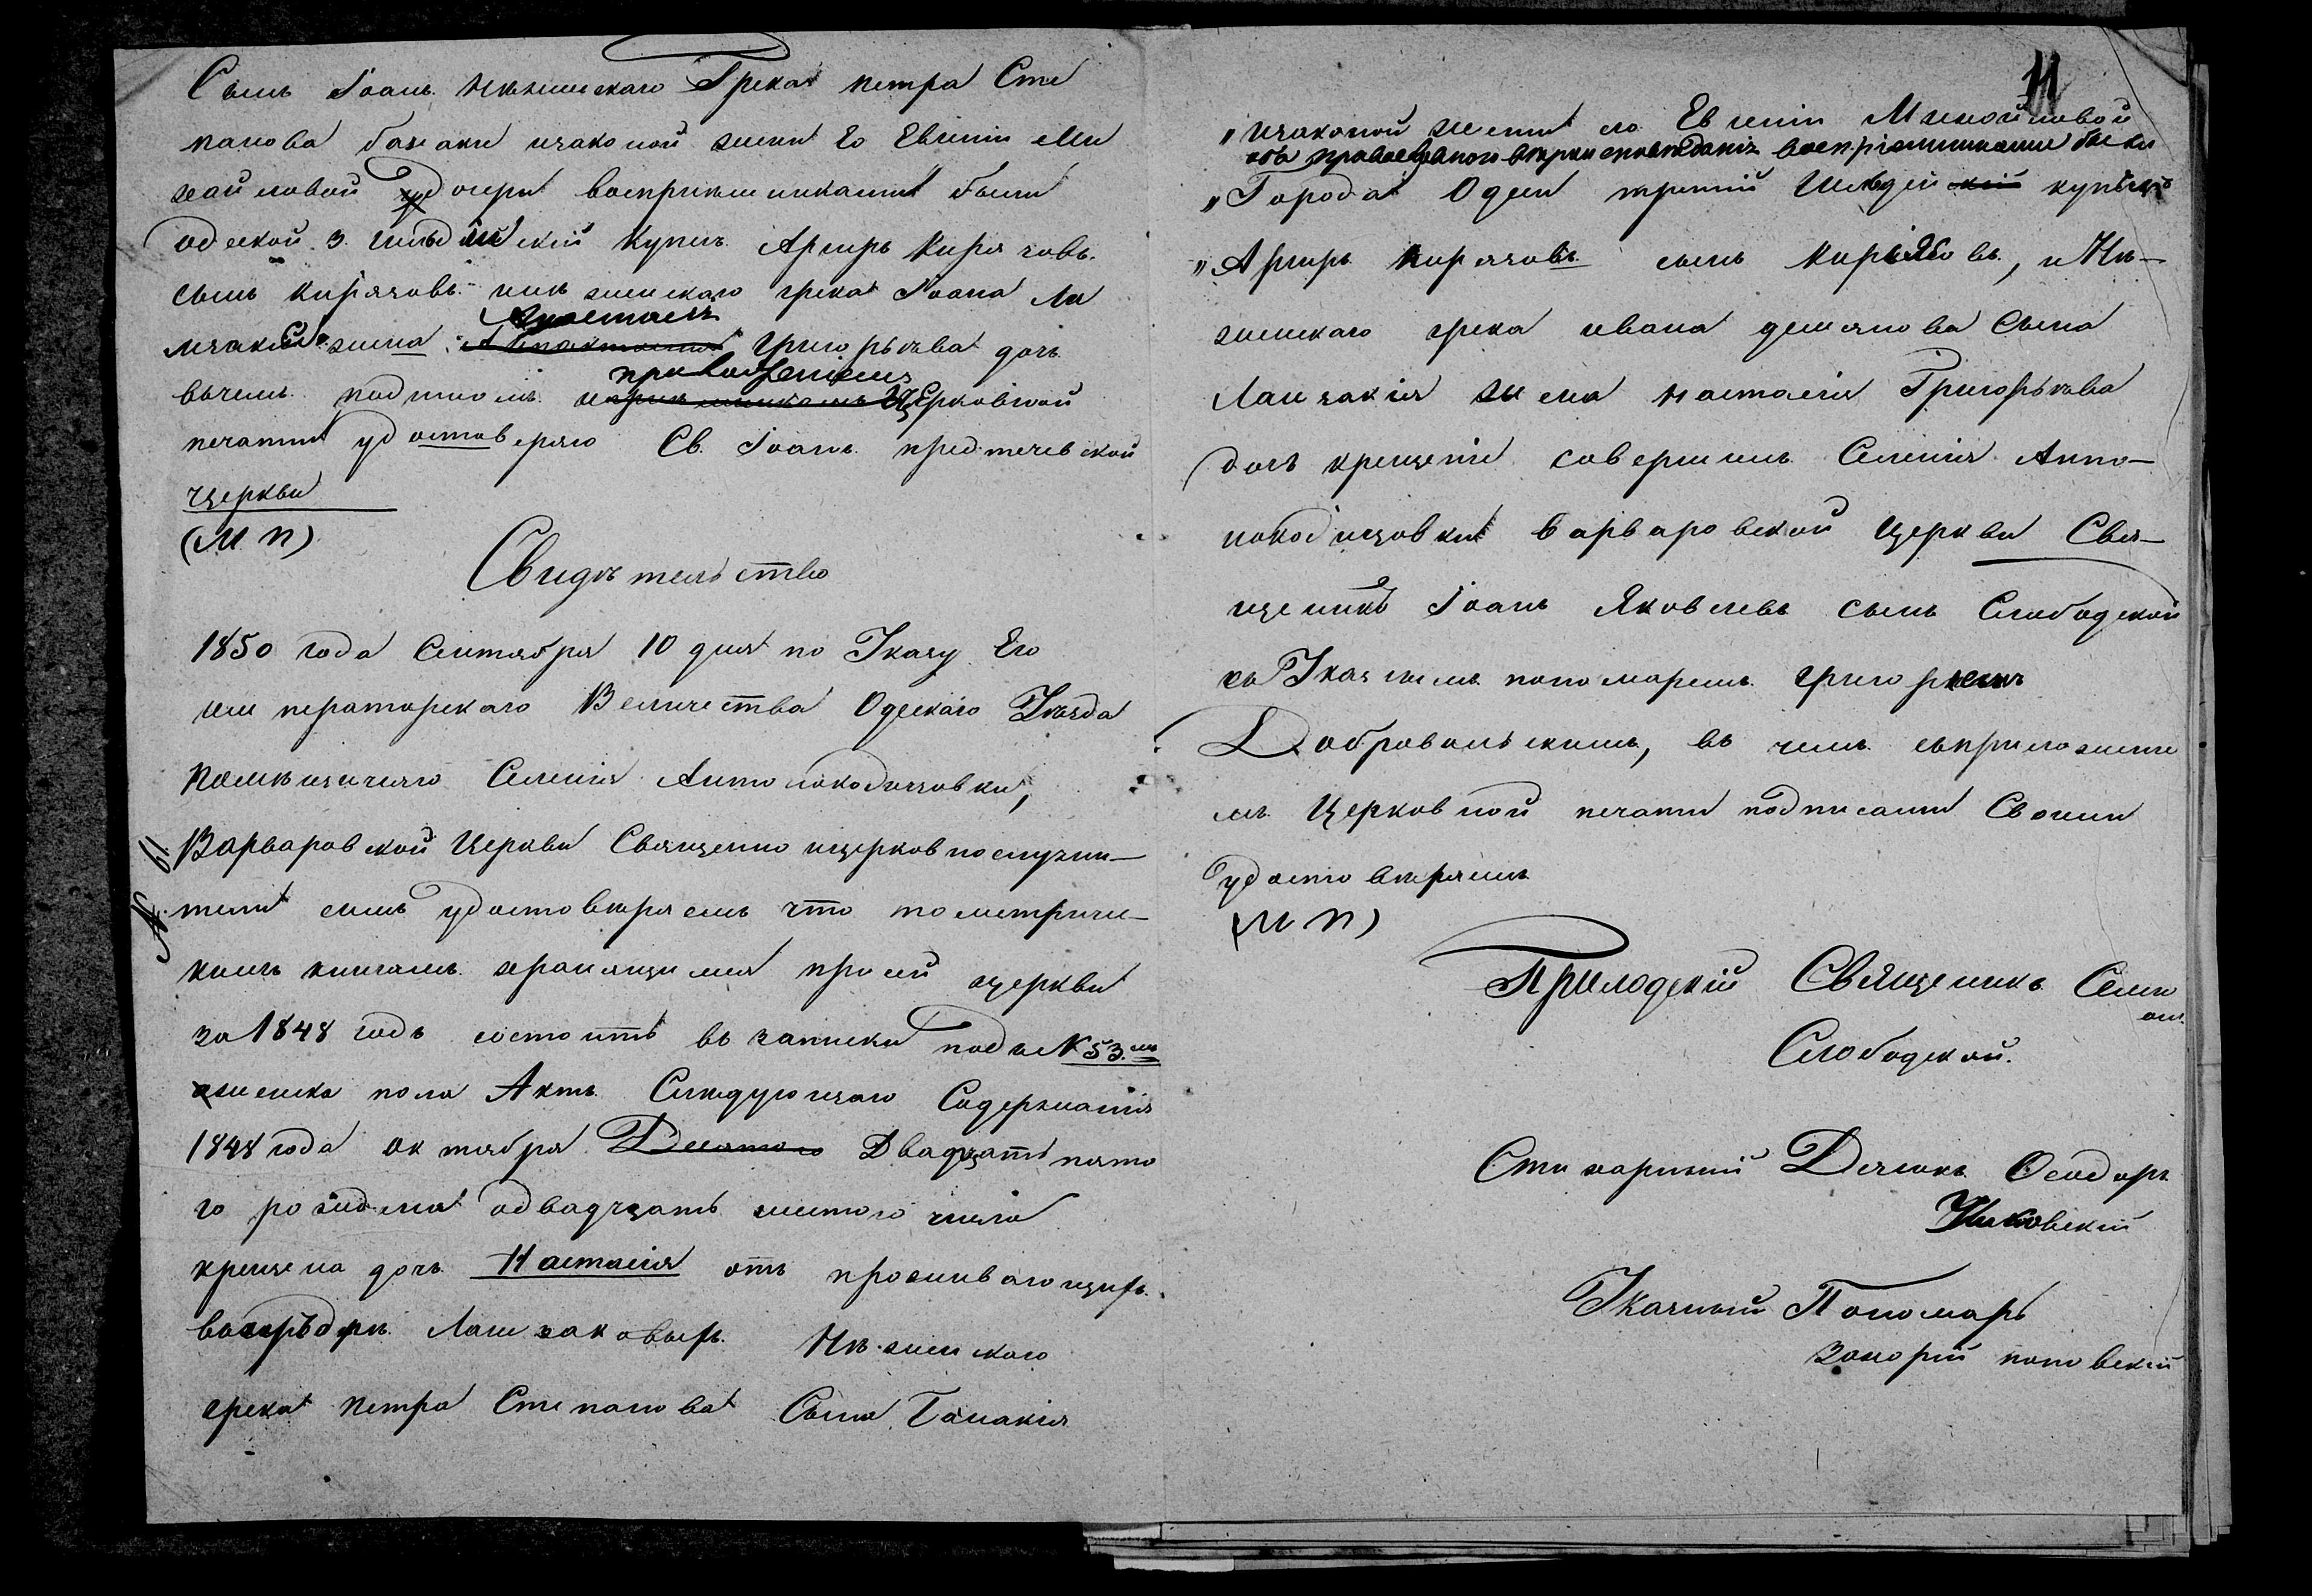 Сынъ Іоанъ Нѣжинскаго Грека петра Сте
панова банаки изаконой жены Ео Евгении Ми
хайловой дочери восприемниками были
одеской 3 гильдийский Купец Аргиръ Киря ковъ
сынъ Киряковъ инѣ жинскаго грека Іоана Ла
жена Анастасія Григорьева дочь
вчемъ подписомъ приложениемъ Церковной
печати удостоверяю Св. Іоанъ предтечевской
церкви
(М П)
Свидѣтельство
1850 года Сентября 10 дня по Указу Его
императорскаго Величества Одескаго Уѣзда
Помѣщичяго Селенія Антонокодинцовки,
№ 61
Варваровской Церкви Священно ицерковнослужи-
тели симъ удостовѣряемъ что пометриче-
кимъ книгамъ хранящимся присей церкви
за 1848 годъ состоитъ въ записки подъ № 53.мъ
женска пола Актъ Слѣдующаго Содержанія
1848 года октября Десятого Двадцать пято
го рождена адвадцать шестого числа
крещена дочь Настасія отъ проживающихъ
Ланжаковыхъ Нѣжинского
грека петра Степанова Сына Банакія
11
„ изаконой жены его Евгении Михайловой
оба православного вѣроисповѣданія восприемниками были
„ Города Одеси третий Гильдейский купецъ
„ Аргиръ Киряковъ сынъ Киріяковъ, и Нѣ-
жинскаго грека ивана демянова Сына
Ланжакія жена Настасія Григорьева
дочь крещеніе совершилъ Селенія Анто-
нокодинцовки Варваровской Церкви Свя-
щеникъ Іоанъ Яковлевъ сынъ Слободской
съ Указнымъ пономаремъ Григоріемъ
Добровольскимъ, въ чемъ съприложение
мъ Церковной печати подписами Своими
удостовѣряемъ
(М П)
Приходскій Священикъ Симе
он.
Слободской.
Стихарный Дячокъ Феодоръ
Указный Пономарь
Захорій поповскій